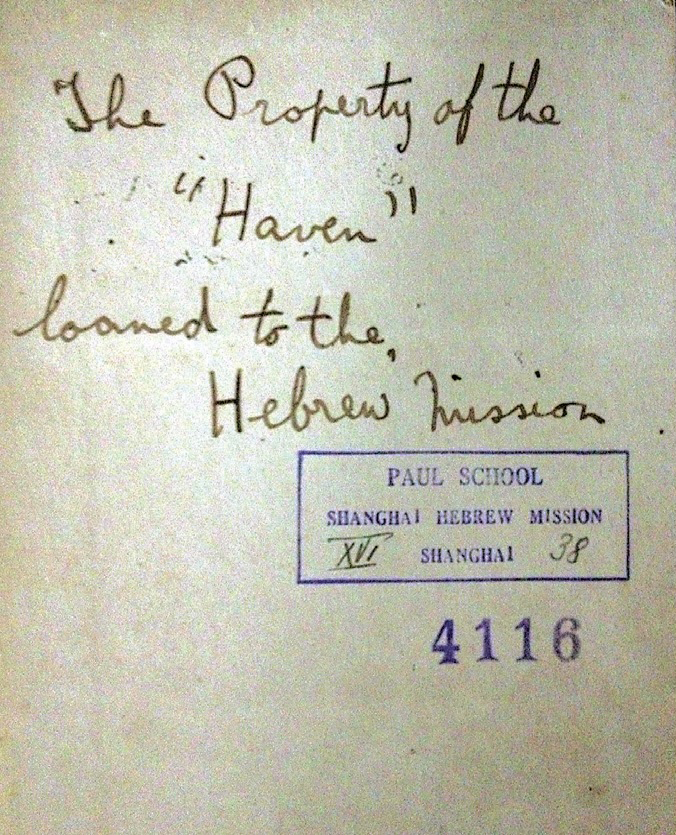 The Property of the
"Haven"
loaned to the,
Hebrew Mission
PAUL SCHOOL
SHANGHAI HEBREW MISSION
XVI SHANGHAI 38
4116